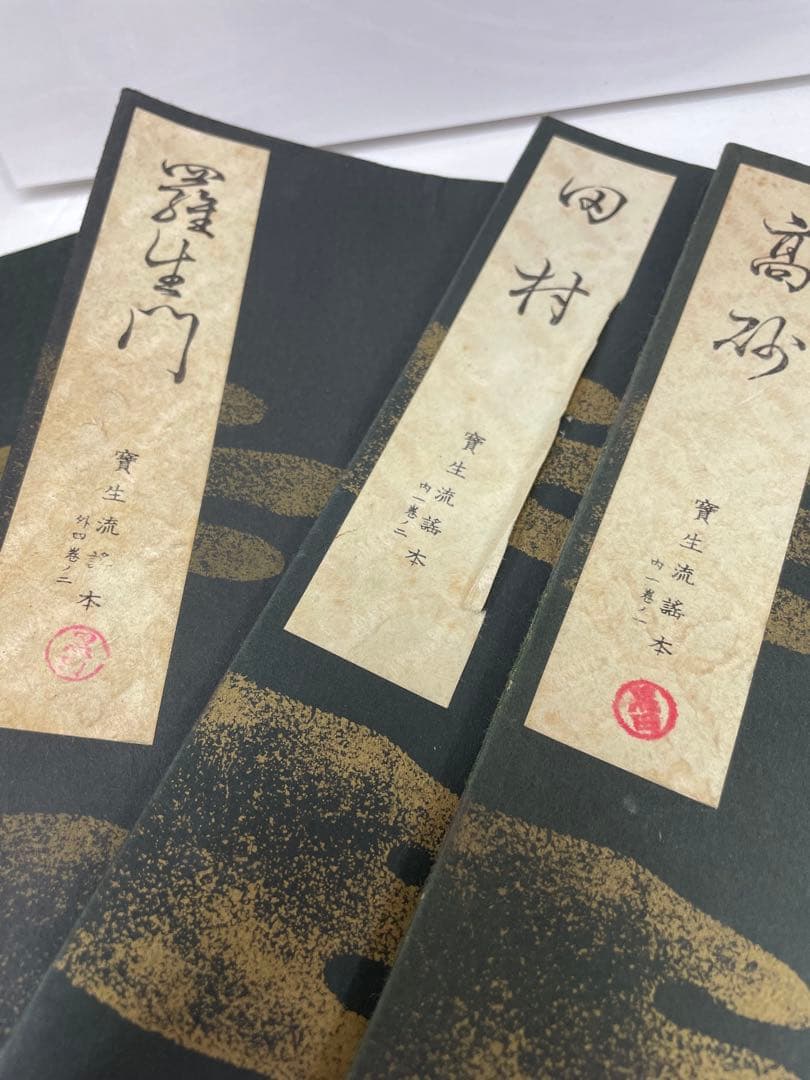 羅生門
寶生流謠本
外四巻ノ二
田村
寶生流謠本
内一巻ノ二
高砂
寶生流謠本
内一巻ノ一